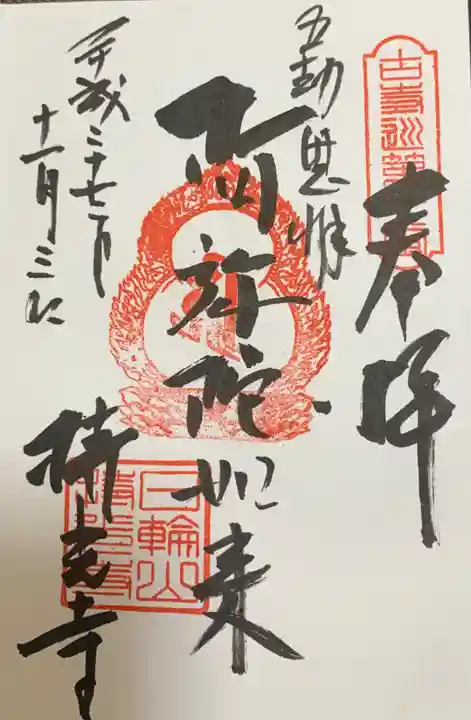 奉拝
古寺巡
五劫思惟
阿弥陀如来
平成二十七年
十一月三日
持光寺
日輪山
持光寺